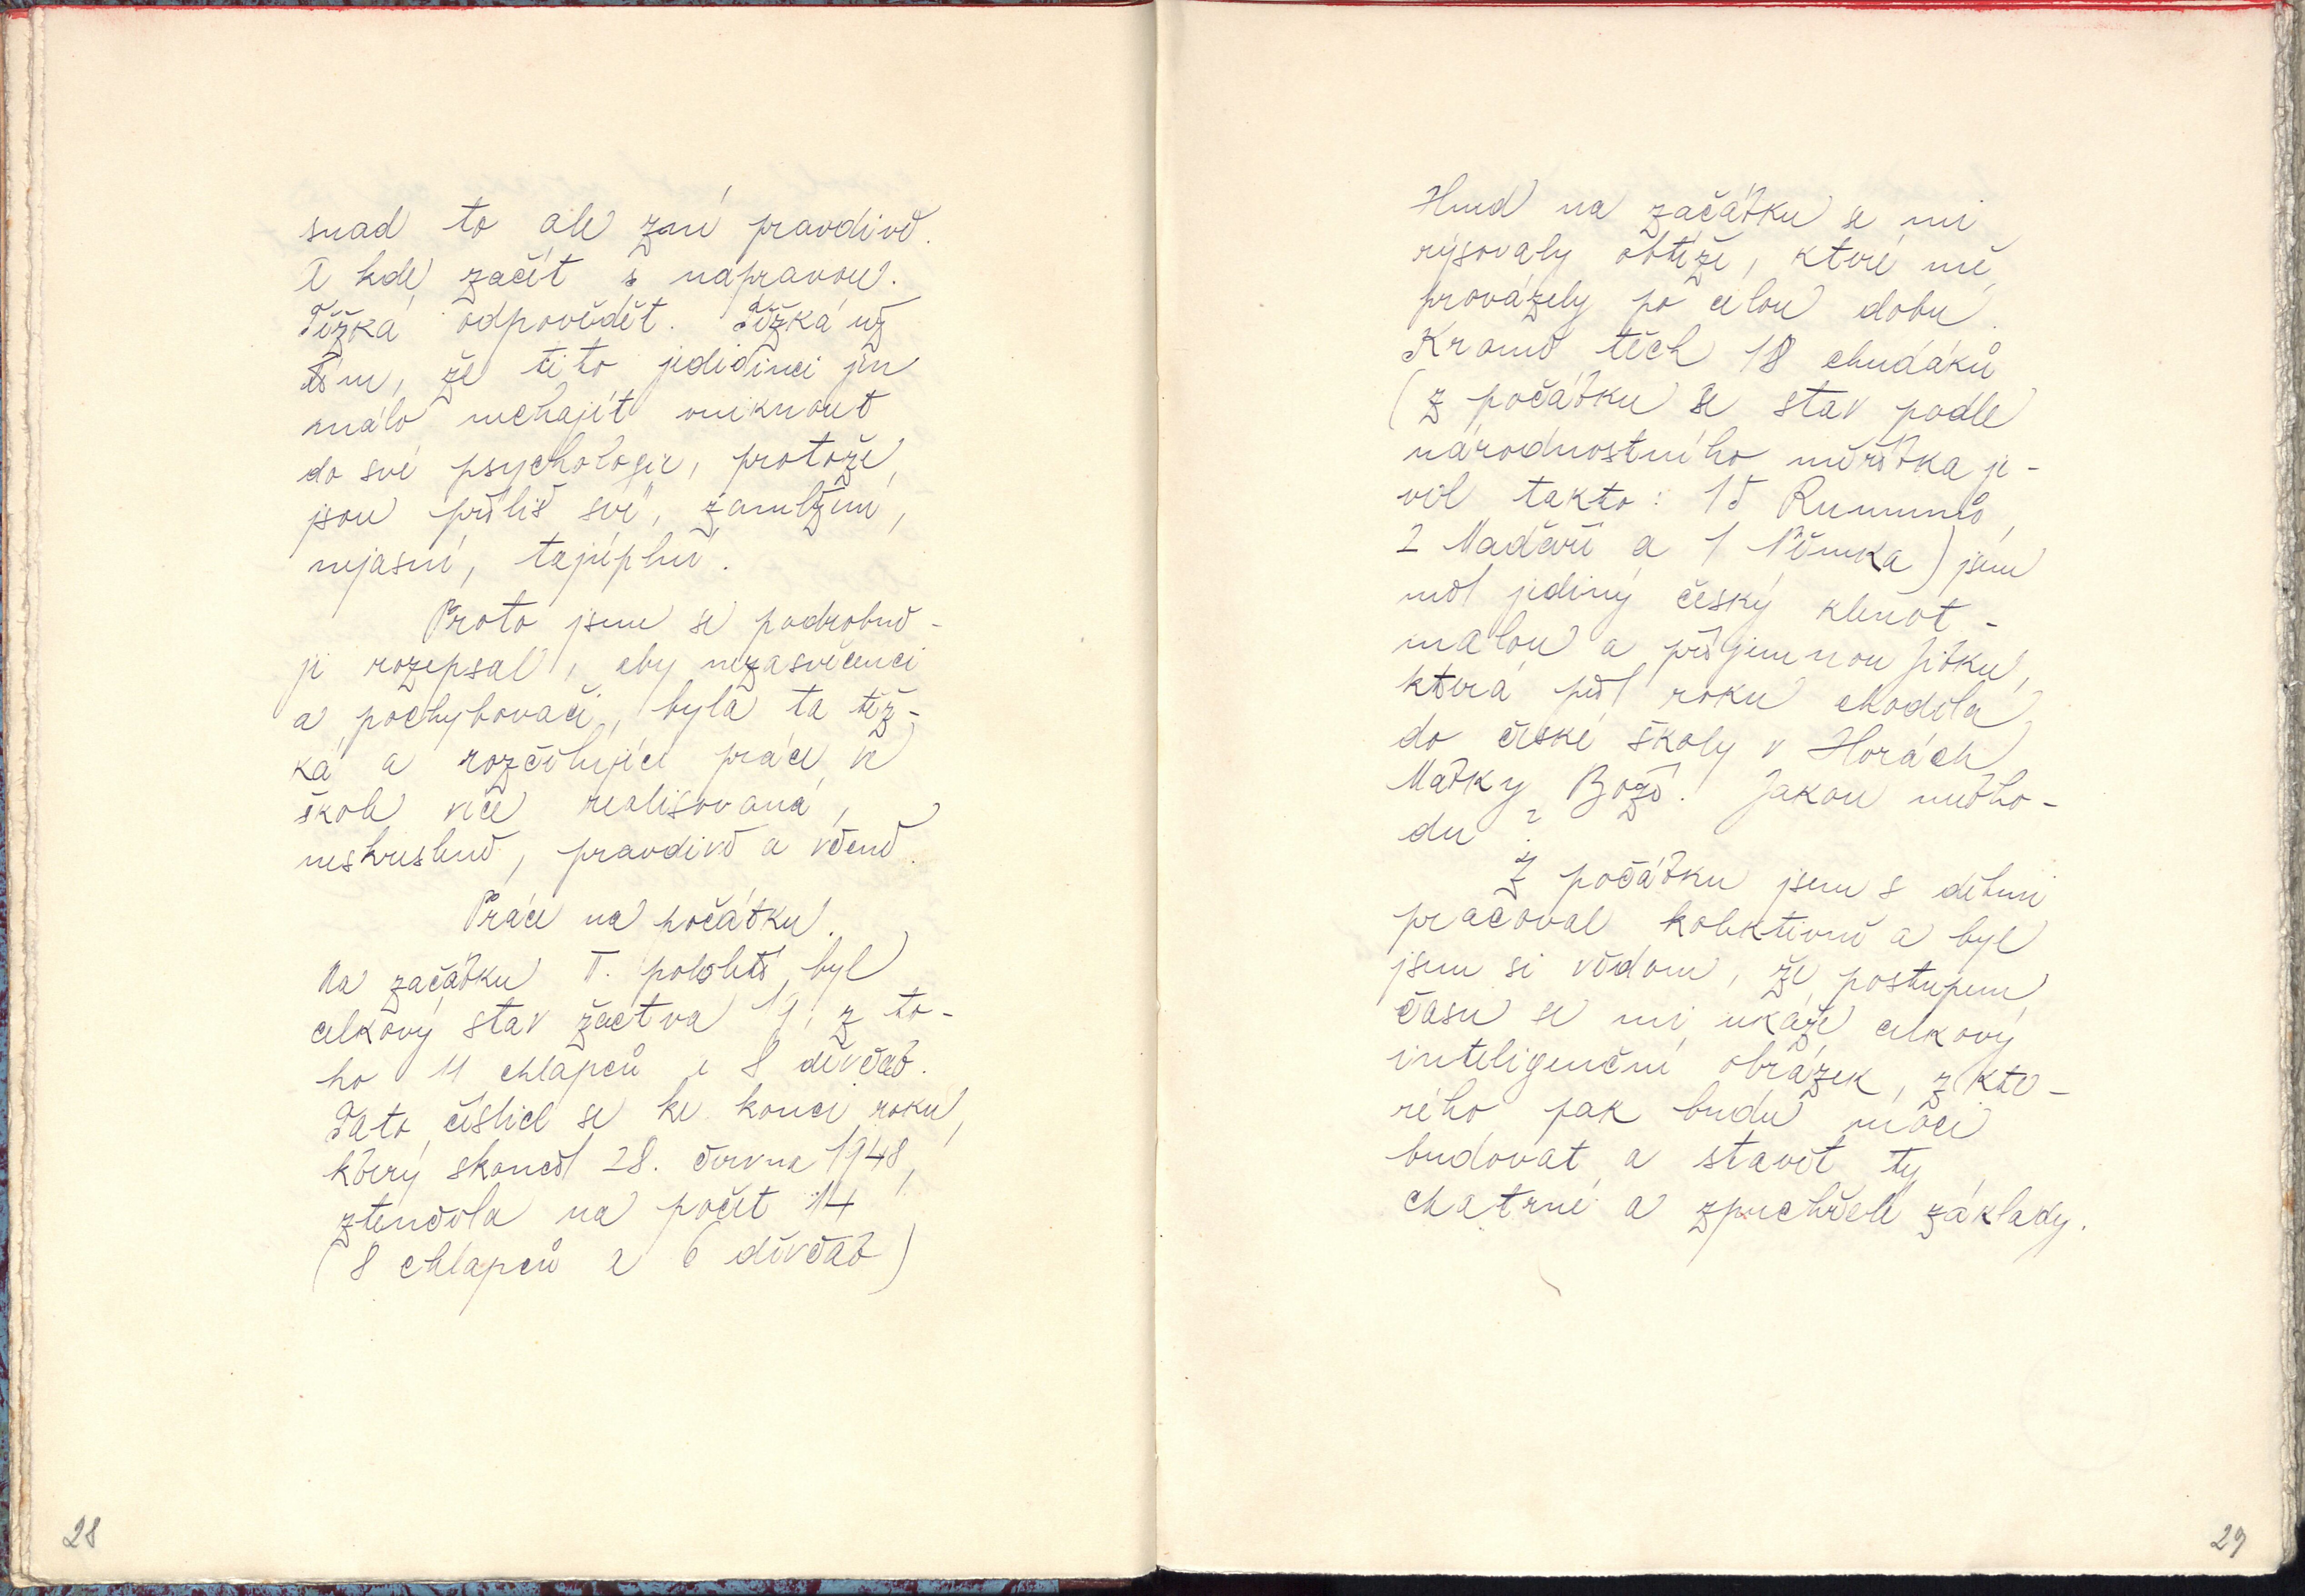 snad to ale zní pravdivě.
A kde začít s nápravou.
Těžká odpověděť. Těžká už
tím, že tito jedidinci jen
málo nechají vniknout
do své psychologie, protože
jsou příliš „sví", zamlžení,
nejasní, tajúplní.
Proto jsem se podrobně-
ji rozepsal, aby nezasvěcenci
a pochybovači, byla ta těž-
ká a rozčilující práce ve
škole více realisovaná,
neskresleně, pravdivě a věcně.
Práce na počátku.
Na začátku I. pololetí byl
celkový stav žactva 19, z to-
ho 11 chlapců a 8 děvčat.
Tato číslice se ke konci roku,
který skončil 28. června 1948,
ztenčila na počet 14
(8 chlapců a 6 děvčat)
28
Hned na začátku se mi
rýsovaly obtíže, které mě
provázely po celou dobu.
Kromě těch 18 chudáků
(z počátku se stav podle
národnostního měřítka je-
vil takto: 15 Rumunů,
2 Maďaři a 1 Němka) jsem
měl jediný český klenot -
malou a příjemnou Jitku,
která půl roku chodila
do české školy v Horách
Matky Boží. Jakou metho-
du?
Z počátku jsem s dětmi
pracoval kolektivně a byl
jsem si vědom, že postupem
času se mi ukáže celkový
inteligenční obrázek, z kte-
rého pak budu moci
budovat a stavět ty
chatrné a zpuchřelé základy.
29